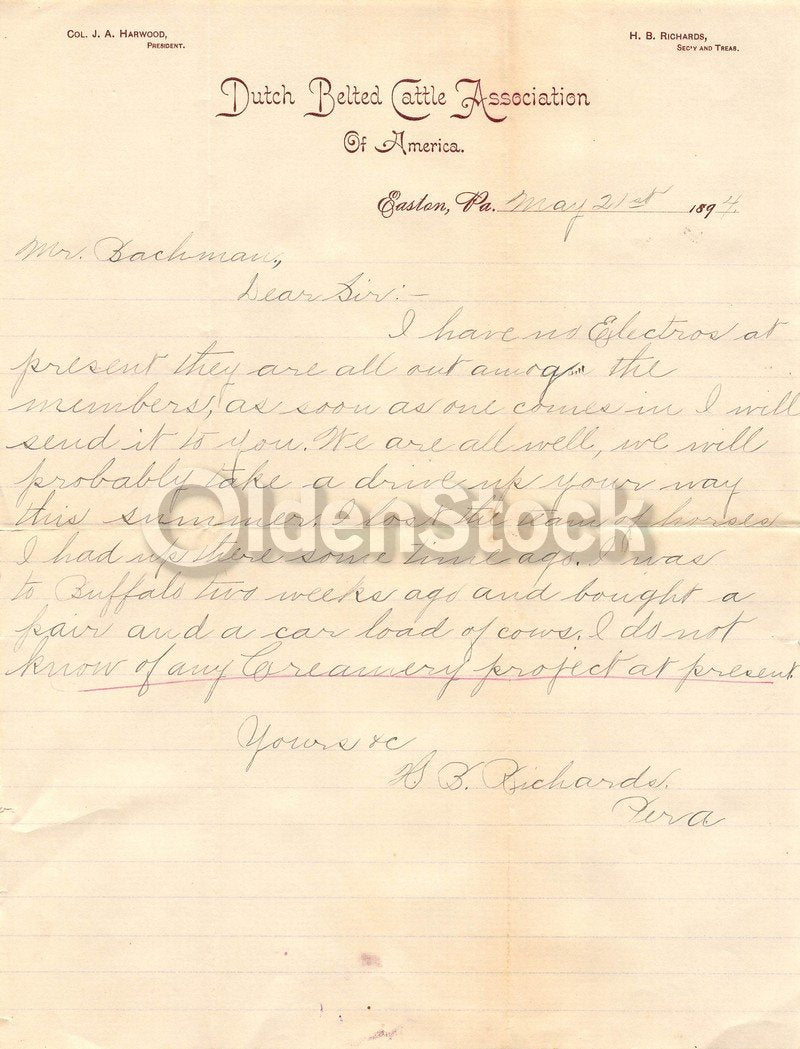 Col. J. A. Harwood,
President.
H. B. Richards,
Sec'y and Treas.
Dutch Belted Cattle Association
Of America.
Easton, Pa. May 21st 1894.
Mr. Bachman,
Dear Sir:-
I have no Electros at
present they are all out amog the
members, as soon as one comes in I will
send it to you. We are all well, we will
probably take a drive up your way
this summer. I lost the team of horses
I had up there some time ago. I was
to Buffalo two weeks ago and bought a
pair and a car load of cows. I do not
know of any Creamery project at present
Yours &c
H. B. Richards.
OldenStock